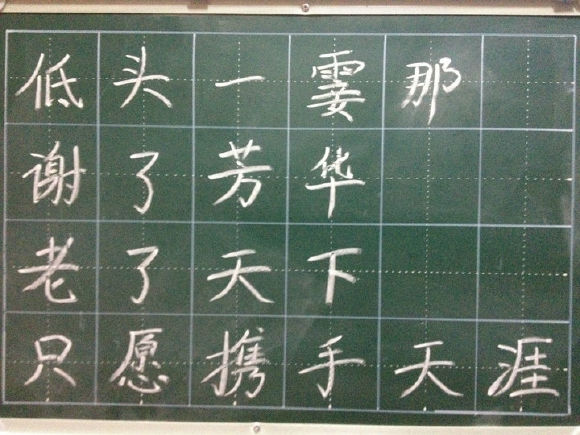 低头一霎那
谢了芳华
老了天下
只愿携手天涯